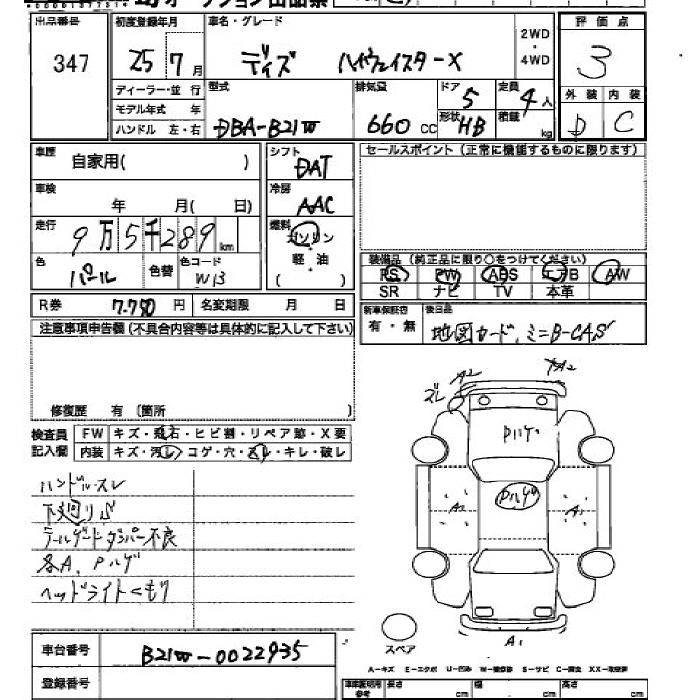 出品番号 347
初度登録年月 25 7月
車名・グレード デイズ ハイウェイスターX
2WD・4WD
評価点 3
外装 D 内装 C
ディーラー・並行
モデル年式 年
ハンドル 左・右
型式 DBA-B21W
排気量 660 CC
ドア 5
形状 HB
定員 4人
積載 kg
車歴 自家用( )
車検 年 月( 日)
走行 9万5千289km
色 パール 色替 色コード W13
シフト DAT
冷房 AAC
燃料 ガソリン・軽・油 ( )
セールスポイント(正常に機能するものに限ります)
装備品(純正品に限り○をつけてください)
PS PW ABS エアB AW
SR ナビ TV 本革
R券 7.750円 名変期限 月 日
新車保証書 有・無
後日品 地図カード、ミニB-CAS
注意事項申告欄(不具合内容等は具体的に記入して下さい)
修復歴 有 (箇所 )
検査員記入欄
FW キズ・飛石・ヒビ割・リペア跡・X要
内装 キズ・汚レ・コゲ・穴・スレ・キレ・破レ
ハンドルスレ
下廻りサビ
テールゲートダンパー不良
各A、Pハゲ
ヘッドライトくもり
ズレ A2 XA2
Pハゲ
Pハゲ
A2 A2
A1
スペア
車台番号 B21W-0022935
登録番号
A-キズ E-エクボ U-凹み W-補修跡 S-サビ C-腐食 XX-取替済
車庫証明用参考 長さ cm 幅 cm 高さ cm